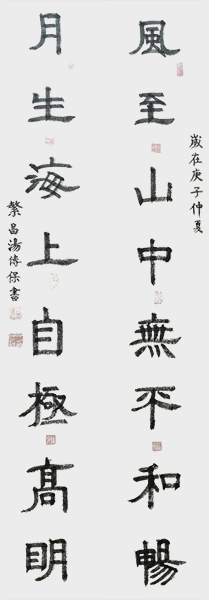 歲在庚子仲夏
風至山中無不和暢
月生海上自極高明
繁昌湯傳保書